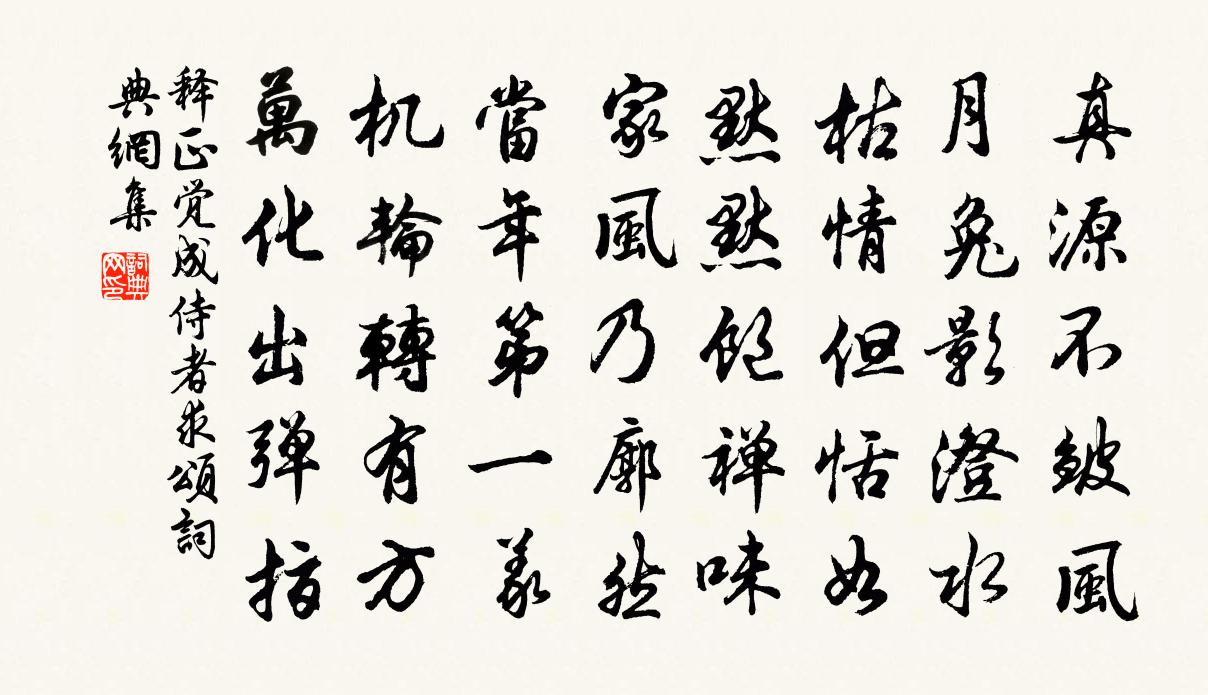 真源不皺風
月兔影澄水
枯情但恬如
默默飽禅味
家風乃廓然
當年第一義
机輪轉有方
萬化出弹指
释正觉成侍者求頌詞
典網集
詞典
网印